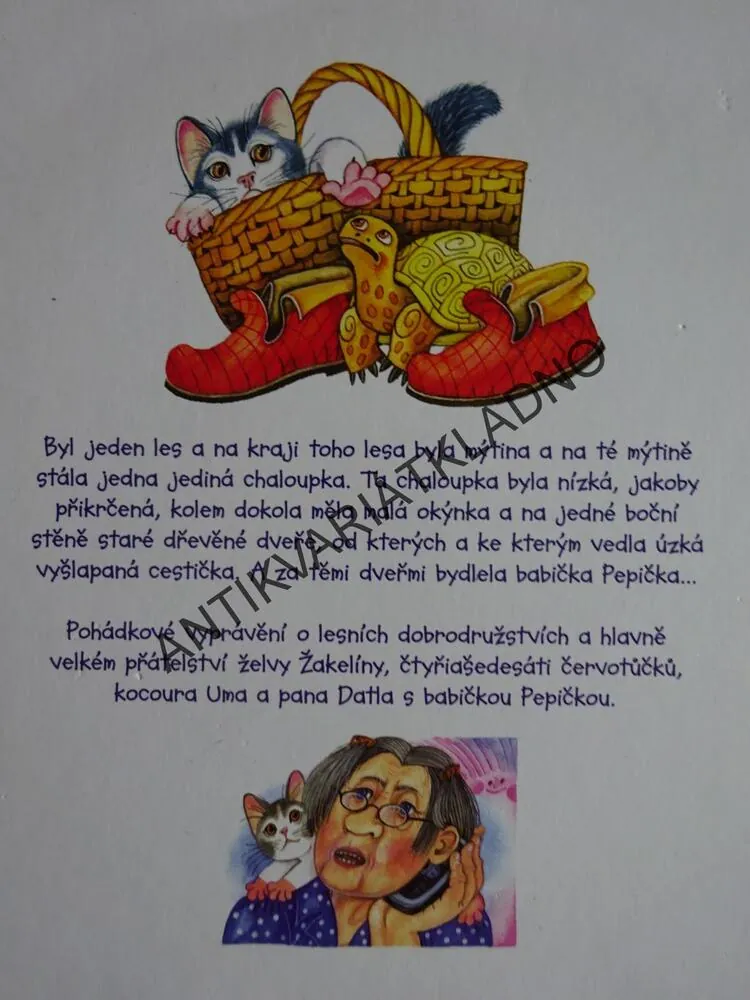 Byl jeden les a na kraji toho lesa byla mýtina a na té mýtině
stála jedna jediná chaloupka. Ta chaloupka byla nízká, jakoby
přikrčená, kolem dokola měla malá okýnka a na jedné boční
stěně staré dřevěné dveře, od kterých a ke kterým vedla úzká
vyšlapaná cestička. A za těmi dveřmi bydlela babička Pepička...
Pohádkové vyprávění o lesních dobrodružstvích a hlavně
velkém přátelství želvy Žakelíny, čtyřiašedesáti červotůčků,
kocoura Uma a pana Datla s babičkou Pepičkou.
ANTIKVARIATKLADNO